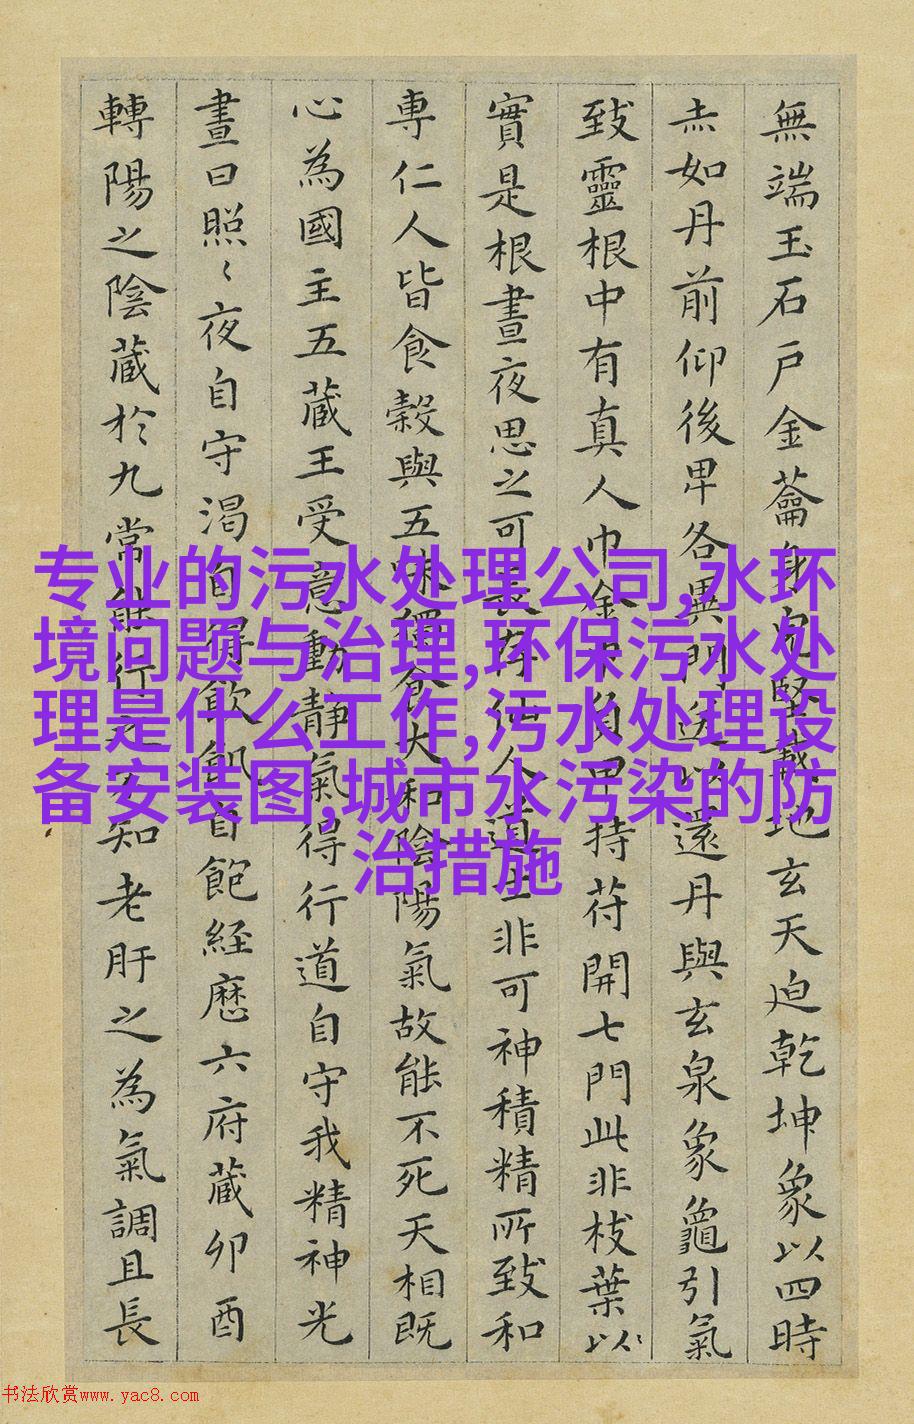 無端玉石戶金蘥身完堅載地玄天迫乾坤象以四時
赤如丹前仰後卑各異門送以還丹與玄泉象龜引氣
致靈根中有真人巾金巾負甲持苻開七門此非枝葉以
實是根晝夜思之可長存仙人道士非可神積精所致和
專仁人皆食穀與五味獨食大和陰陽氣故能不死天相既
心為國主五藏王受意動靜氣得行道自守我精神光
晝日照々夜自守渴自得飲飢自飽經歷六府藏卯酉
轉陽之陰藏於九常能行之不知老肝之為氣調且長
专业的污水处理公司,水环
境问题与治理,环保污水处
理是什么工作,污水处理设
备安装图,城市水污染的防
治措施
书法欣赏www.yac8.com